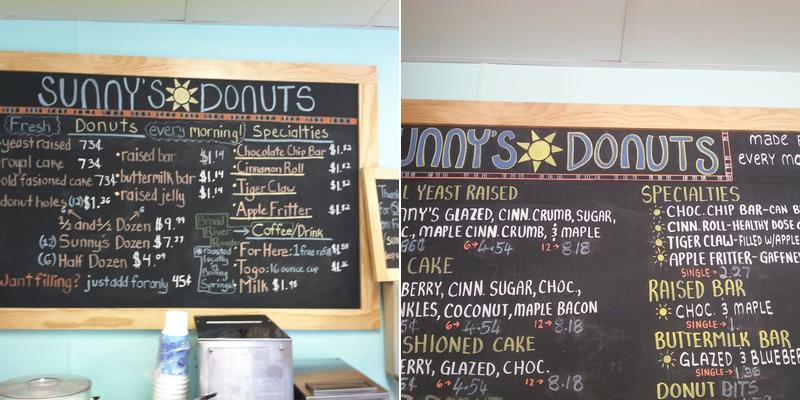 SUNNY'S DONUTS
Fresh Donuts (every morning!) Specialties
yeast raised 73¢
royal cake 73¢
old fasioned cake 73¢
donut holes (12) $1.36
raised bar $1.14
buttermilk bar $1.14
raised jelly $1.14
6 6
½ and ½ Dozen $9.99
(12) Sunny's Dozen $7.77
(6) Half Dozen $4.09
Want filling? just add for only 45¢
Chocolate Chip Bar $1.82
Cinnamon Roll $1.82
Tiger Claw $1.82
Apple Fritter $1.82
Coffee/Drink
For Here: 1 free refill
Togo: 16 ounce cup
Milk
Broad
River
roasted
locally
in
Boiling
Springs
Thanks
UNNY'S DONUTS
MADE
EVERY MO
L YEAST RAISED
NNY'S GLAZED, CINN.CRUMB, SUGAR,
C., MAPLE CINN.CRUMB, & MAPLE
86¢ 6→ 4.54 12→ 8.18
CAKE
BERRY, CINN. SUGAR, CHOC.,
NKLES, COCONUT, MAPLE BACON
6→ 4.54 12→ 8.18
SHIONED CAKE
ERRY, GLAZED, CHOC.
6→ 4.54 12→ 8.18
SPECIALTIES
CHOC. CHIP BAR-CAN B
CINN. ROLL-HEALTHY DOSE O
TIGER CLAW-FILLED W/APPLE
APPLE FRITTER-GAFFNEY
SINGLE→ 2.27
RAISED BAR
CHOC. & MAPLE
SINGLE→ 1.
BUTTERMILK BAR
GLAZED & BLUEBE
SINGLE→ 1.36
DONUT BITS